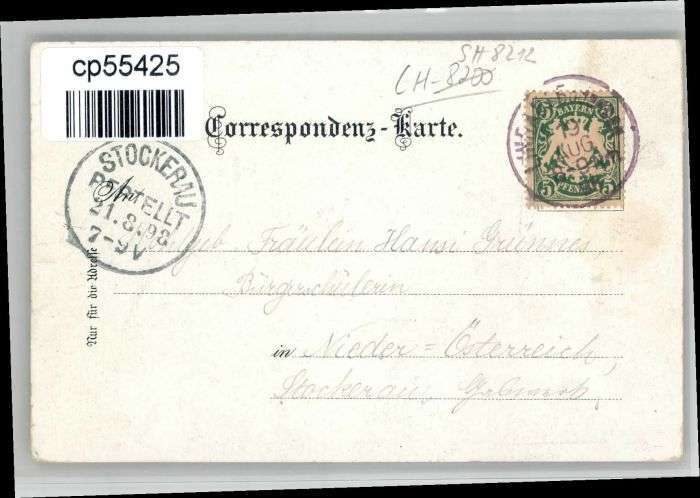 cp55425
SH 8212
CH-8200
Correspondenz-Karte.
BAYERN
5 5
5 5
PFENNIG
19
AUG
STOCKERAU
BESTELLT
21.8.98
7-9V
An
Fräulein Hansi Grünnes,
Bürgerschülerin
in Nieder=Österreich,
Stockerau,
Nur für die Adresse